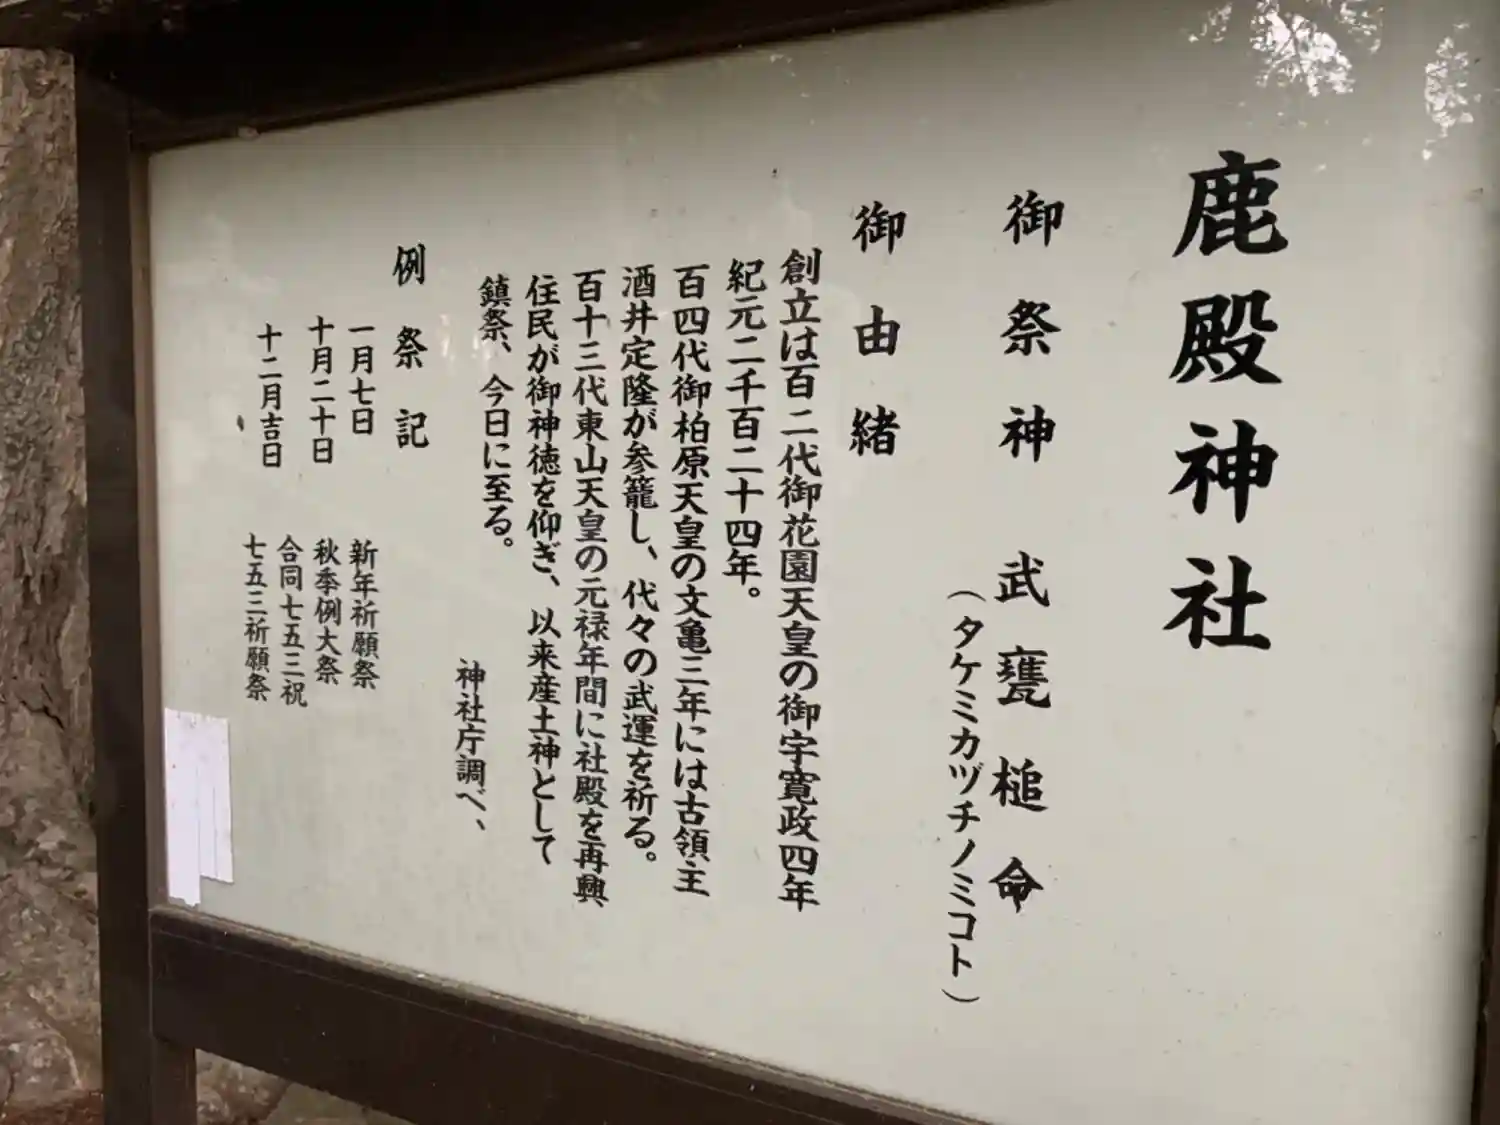 鹿殿神社
御祭神 武甕槌命
（タケミカヅチノミコト）
御由緒
創立は百二代御花園天皇の御宇寛政四年
紀元二千百二十四年。
百四代御柏原天皇の文亀三年には古領主
酒井定隆が参籠し、代々の武運を祈る。
百十三代東山天皇の元禄年間に社殿を再興
住民が御神徳を仰ぎ、以来産土神として
鎮祭、今日に至る。
神社庁調べ、
例祭記
一月七日 新年祈願祭
十月二十日 秋季例大祭
合同七五三祝
十二月吉日 七五三祈願祭